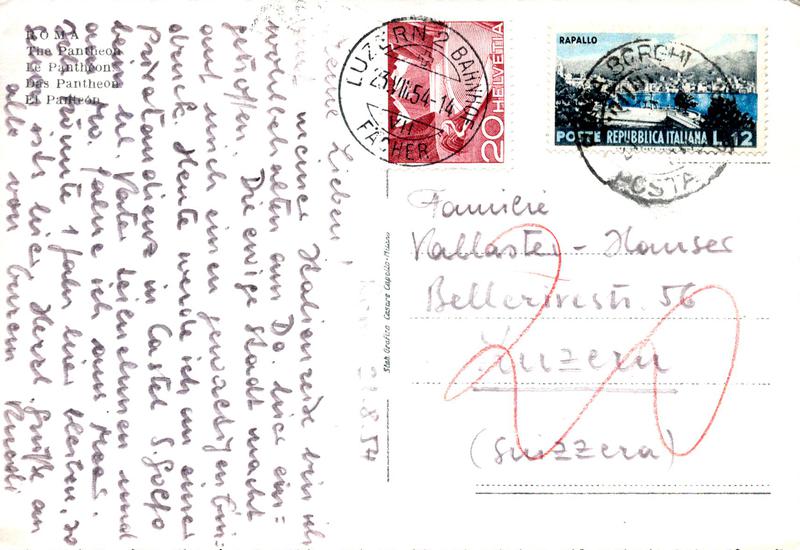 ROMA
The Pantheon
Le Panthéon
Das Pantheon
El Panteón
LUZERN 2 BAHNHOF
23.VIII.54-14
VII
FÄCHER
20 HELVETIA
RAPALLO
POSTE REPUBBLICA ITALIANA L.12
BORGHI
POSTA
Familie
Vallaster-Hauser
Bellerivestr. 56
Luzern
(Suizzera)
20
Stab. Grafico Cesare Capello-Milano
21.8.54
meine Lieben!
meiner Italienreise bin ich
wohlbehalten am Do. hier ein=
getroffen. Die ewige Stadt macht
auf mich einen gewaltigen Ein=
druck. Heute werde ich an einer
Privataudienz in Castel S. Golfo
beim hl. Vater teilnehmen und
fahre ich ans Meer.
könnte 1 Jahr hier bleiben, so
ists hier. Herzl. Grüße an
alle von Eurem